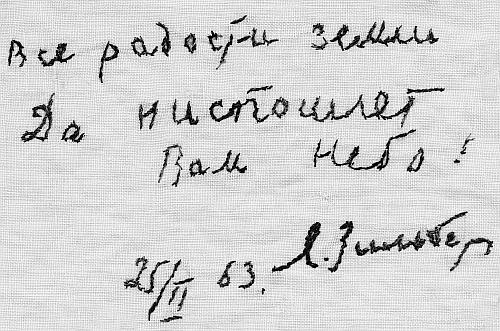 Все радости земли
Да нистошлет
Вам Небо!
25/II 63. Л. Зильбер